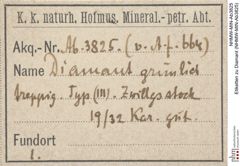 K. k. naturh. Hofmus. Mineral.-petr. Abt.
Akq.-Nr. Ab. 3825. (v. A.f. 664)
Name Diamant grünlich
treppig. Typ (III). Zwillgsstock
19/32 Kar. grit.
Fundort
1.
NHMW-MIN-Ab3825
Etiketten zu Diamant (NHMW-MIN-Ab3825)